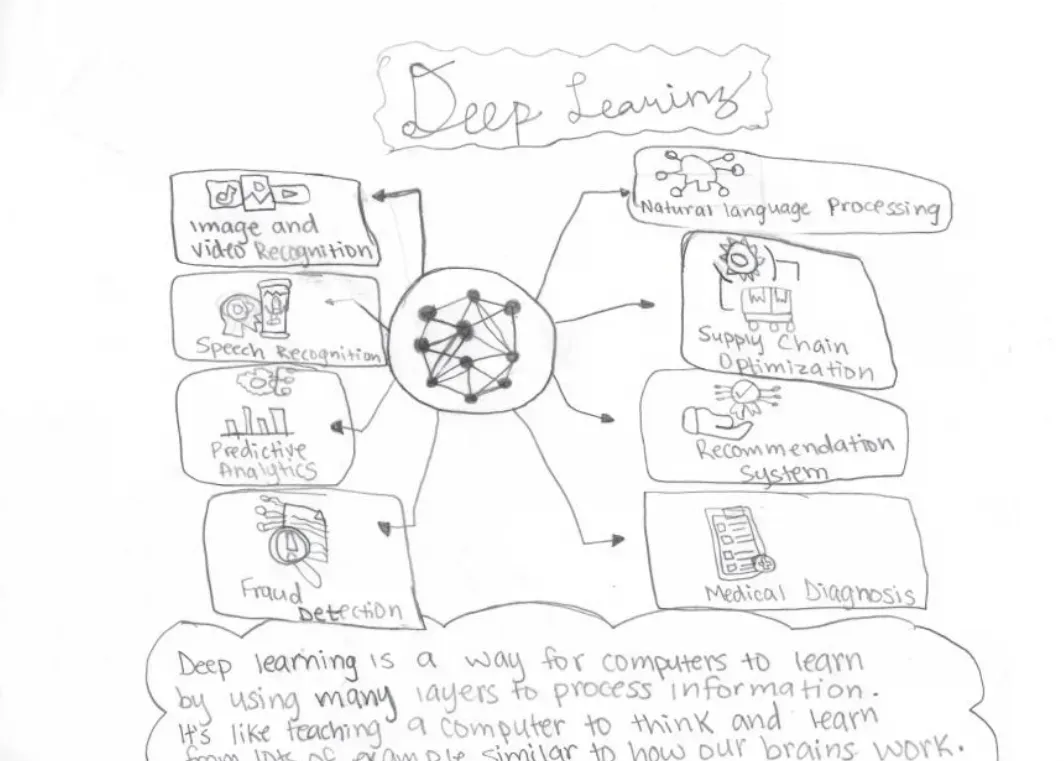 Deep Learning
Image and
Video Recognition
Speech Recognition
Predictive
Analytics
Fraud
Detection
Natural language Processing
Supply Chain
Optimization
Recommendation
System
Medical Diagnosis
Deep learning is a way for computers to learn
by using many layers to process information.
It's like teaching a computer to think and learn
from lots of example similar to how our brains work.